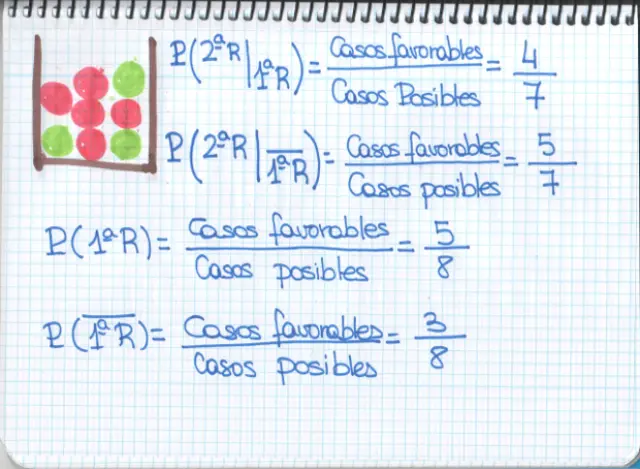 P(2ªR|1ªR) = Casos favorables / Casos Posibles = 4/7
P(2ªR|1̅ª̅R̅) = Casos favorables / Casos posibles = 5/7
P(1ªR) = Casos favorables / Casos posibles = 5/8
P(1̅ª̅R̅) = Casos favorables / Casos posibles = 3/8